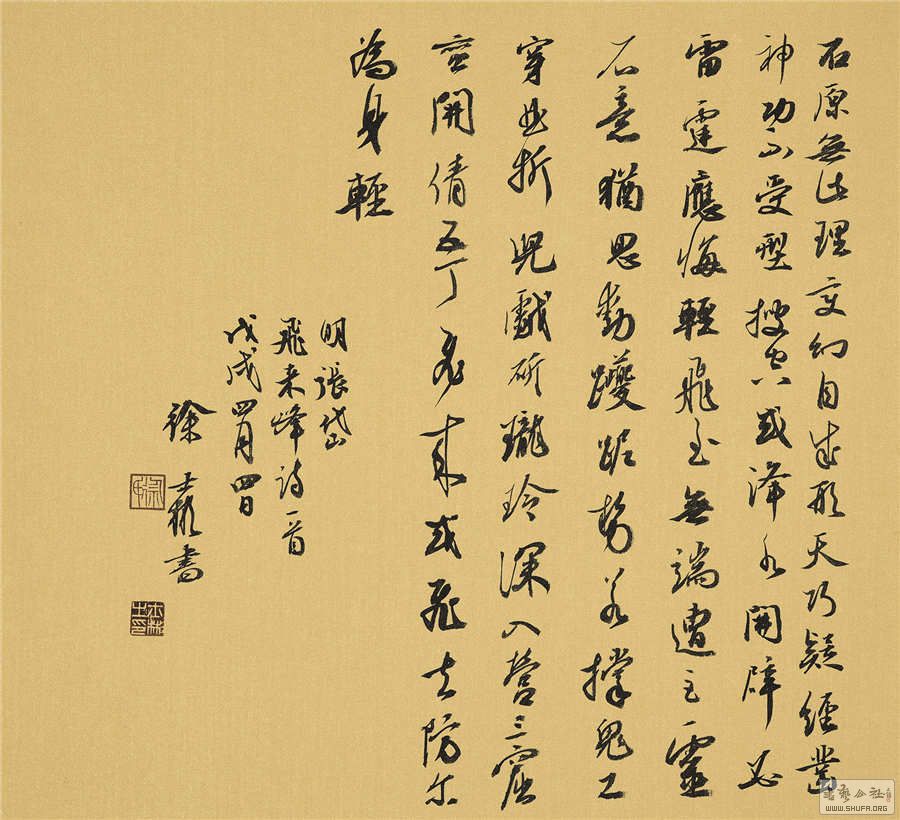 石原無此理变幻自成形天巧疑經鑿
神功不受型搜空或洚水開辟必
雷霆應悔輕飛至無端遭巨靈
石意猶思動躨跜勢若撐鬼工
穿曲折兒戲斫瓏玲深入營三窟
蛮開倩五丁飛来或飛去防尔
為身輕
明張岱
飛来峰詩一首
戊戌四月四日
徐書
書藝公社
WWW.SHUFA.ORG